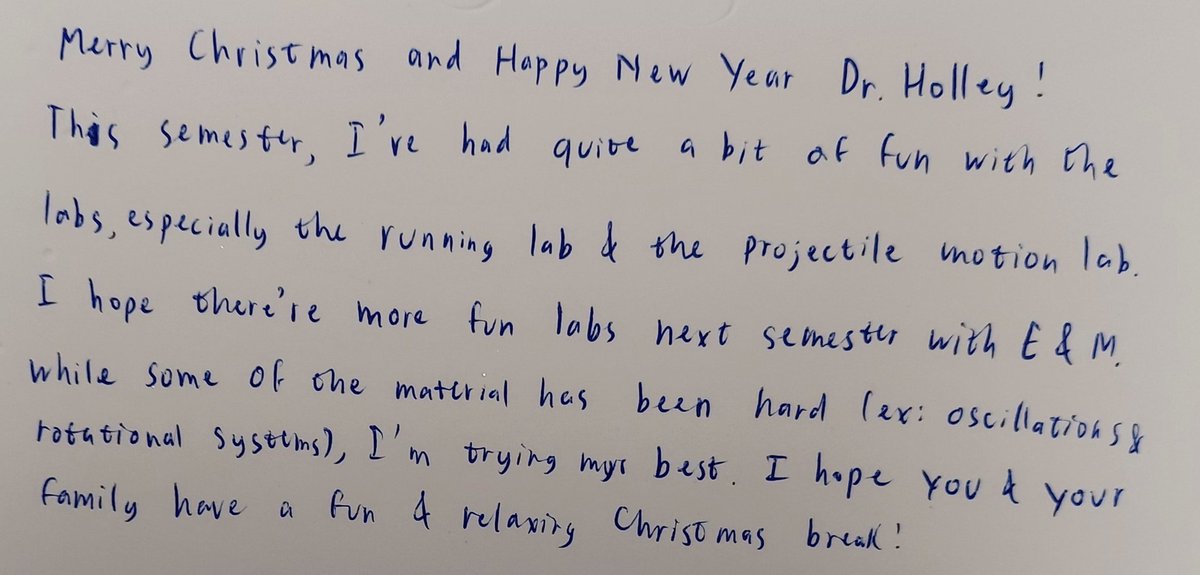 Merry Christmas and Happy New Year Dr. Holley!
This semester, I've had quite a bit of fun with the
labs, especially the running lab & the projectile motion lab.
I hope there're more fun labs next semester with E & M.
While some of the material has been hard (ex: oscillations &
rotational systems), I'm trying my best. I hope you & your
family have a fun & relaxing Christmas break!